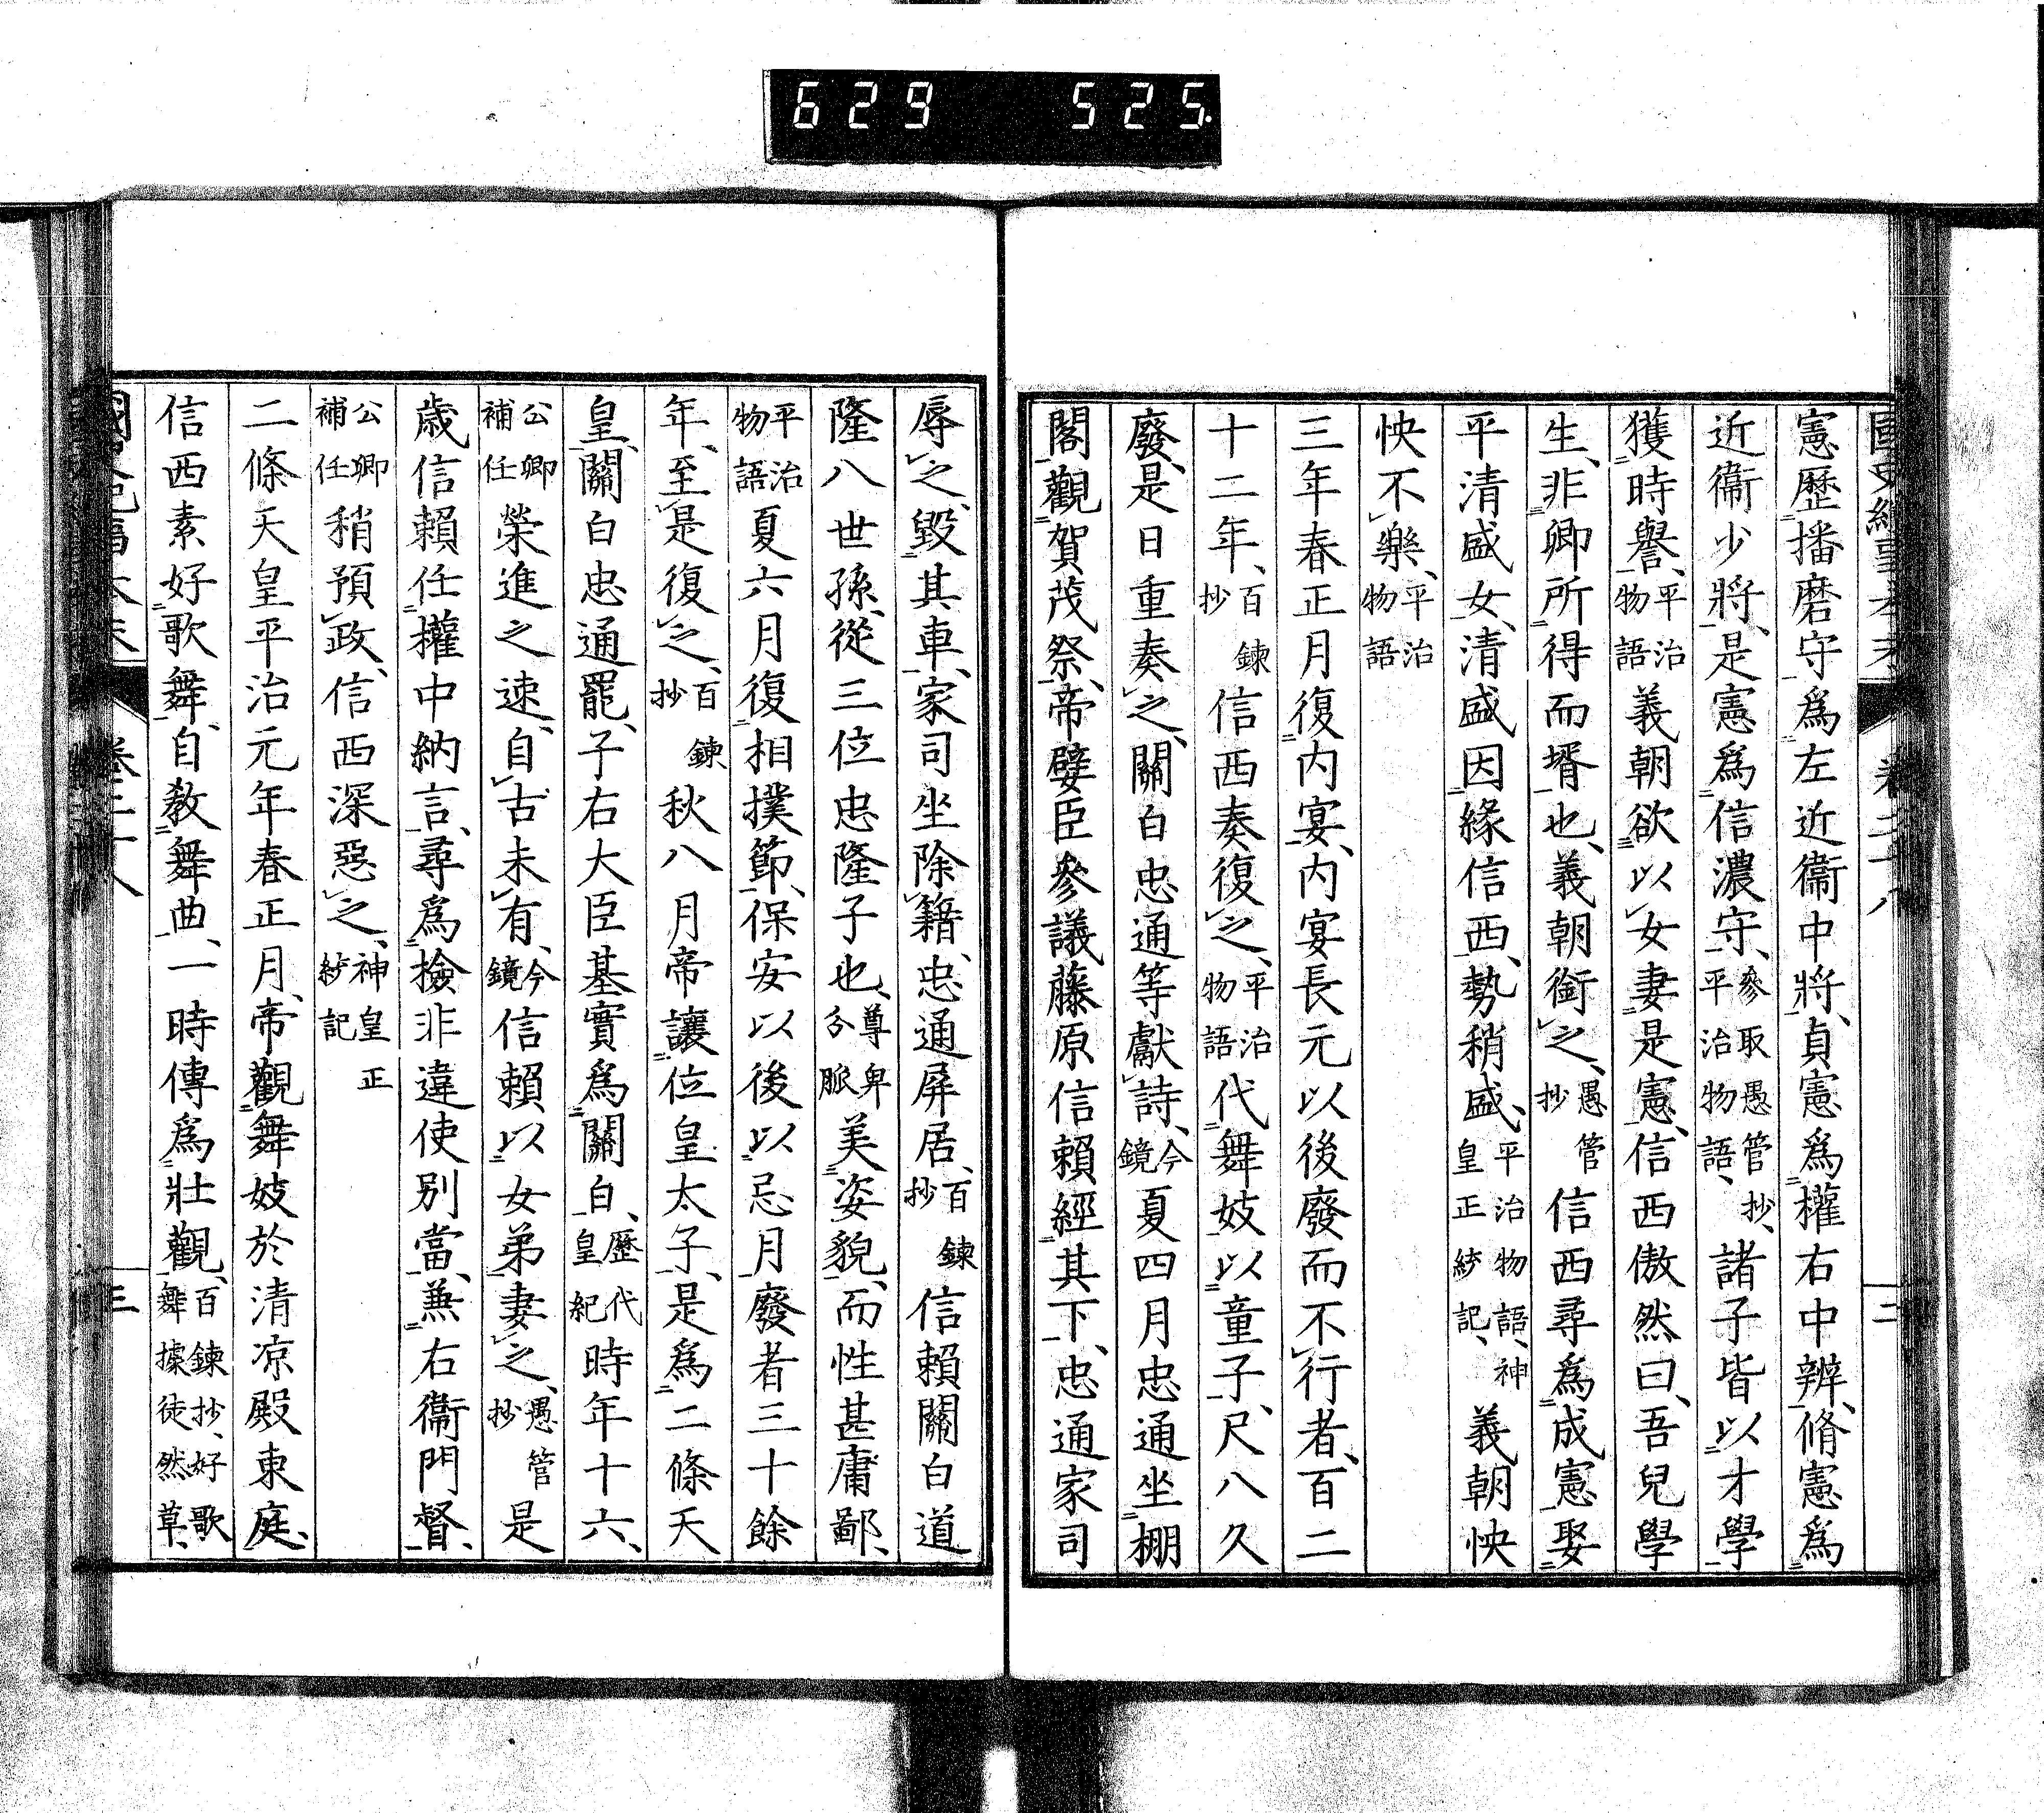 629 525.
國史紀事本末 卷二十八 二
憲歷播磨守爲左近衞中將、貞憲爲權右中辨、脩憲爲
近衞少將、是憲爲信濃守、參取愚管抄、平治物語、諸子皆以才學
獲時譽、平治物語義朝欲以女妻是憲、信西傲然曰、吾兒學
生、非卿所得而壻也、義朝銜之、愚管抄信西尋爲成憲娶
平清盛女、清盛因緣信西、勢稍盛、平治物語、神皇正統記、義朝怏
怏不樂、平治物語
三年春正月復内宴、内宴長元以後廢而不行者、百二
十二年、百鍊抄信西奏復之、平治物語代舞妓以童子、尺八久
廢、是日重奏之、關白忠通等獻詩、今鏡夏四月忠通坐棚
閣觀賀茂祭、帝嬖臣參議藤原信賴經其下、忠通家司
辱之、毀其車、家司坐除籍、忠通屏居、百鍊抄信賴關白道
隆八世孫、從三位忠隆子也、尊卑分脈美姿貌、而性甚庸鄙、
平治物語夏六月復相撲節、保安以後以忌月廢者三十餘
年、至是復之、百鍊抄秋八月帝讓位皇太子、是爲二條天
皇、關白忠通罷、子右大臣基實爲關白、歷代皇紀時年十六、
公卿補任榮進之速、自古未有、今鏡信賴以女弟妻之、愚管抄是
歲信賴任權中納言、尋爲檢非違使別當、兼右衞門督、
公卿補任稍預政、信西深惡之、神皇正統記
二條天皇平治元年春正月、帝觀舞妓於清凉殿東庭、
信西素好歌舞、自敎舞曲、一時傳爲壯觀、百鍊抄、好歌舞據徒然草、
國史紀事本末 卷二十八 三